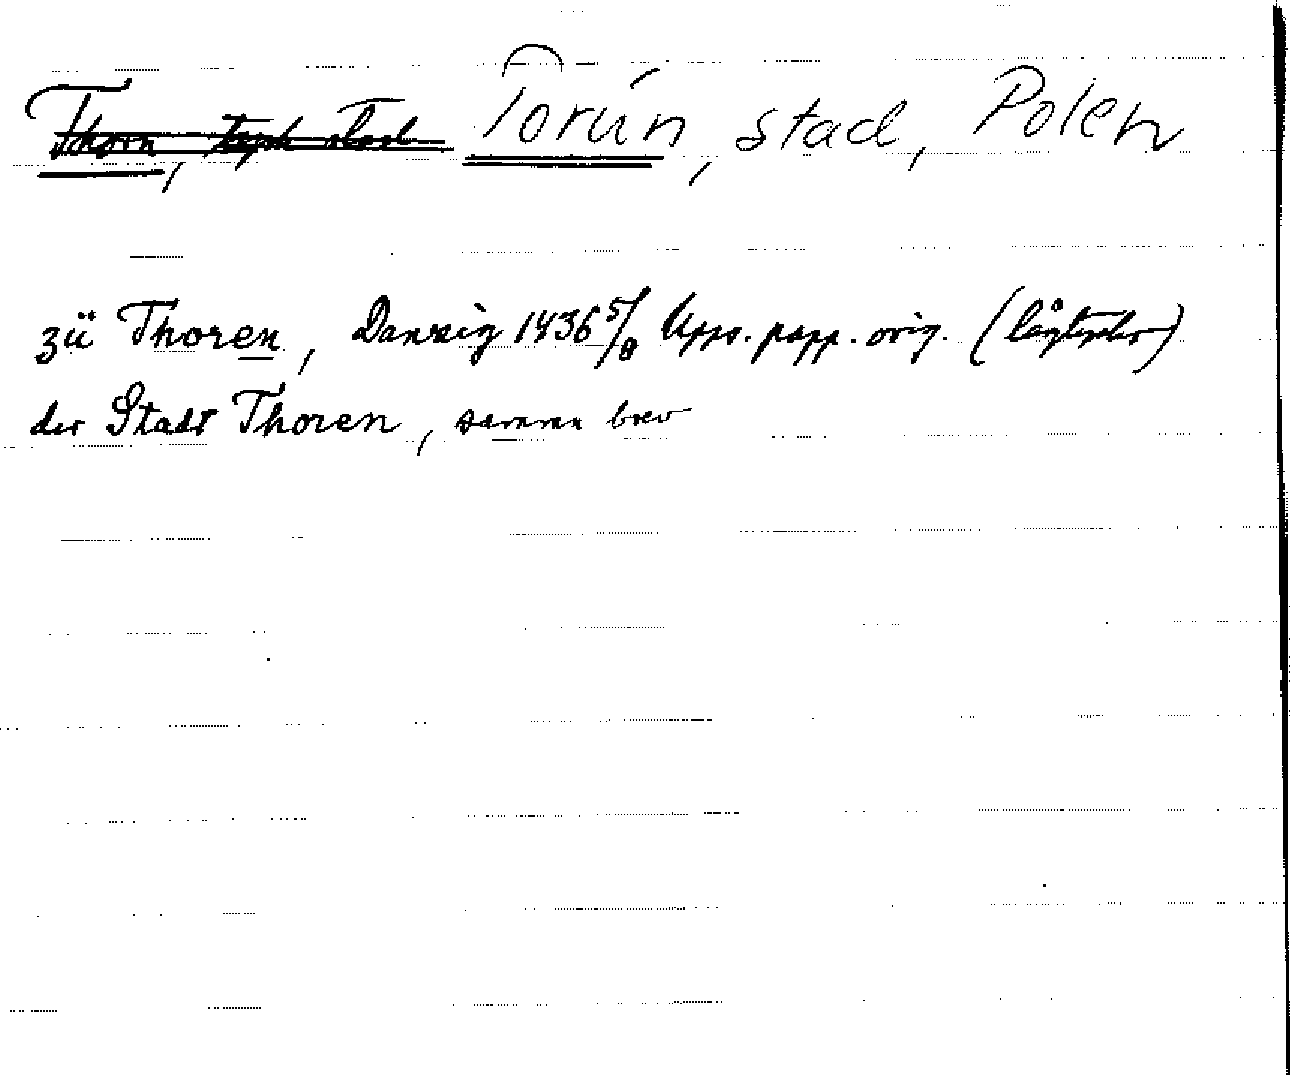 Thorn, tysk stad Toruń, stad, Polen
zü Thoren, Danzig 1436 5/8 Upps. papp. orig. (lågtyska)
der Stadt Thoren, samma brev